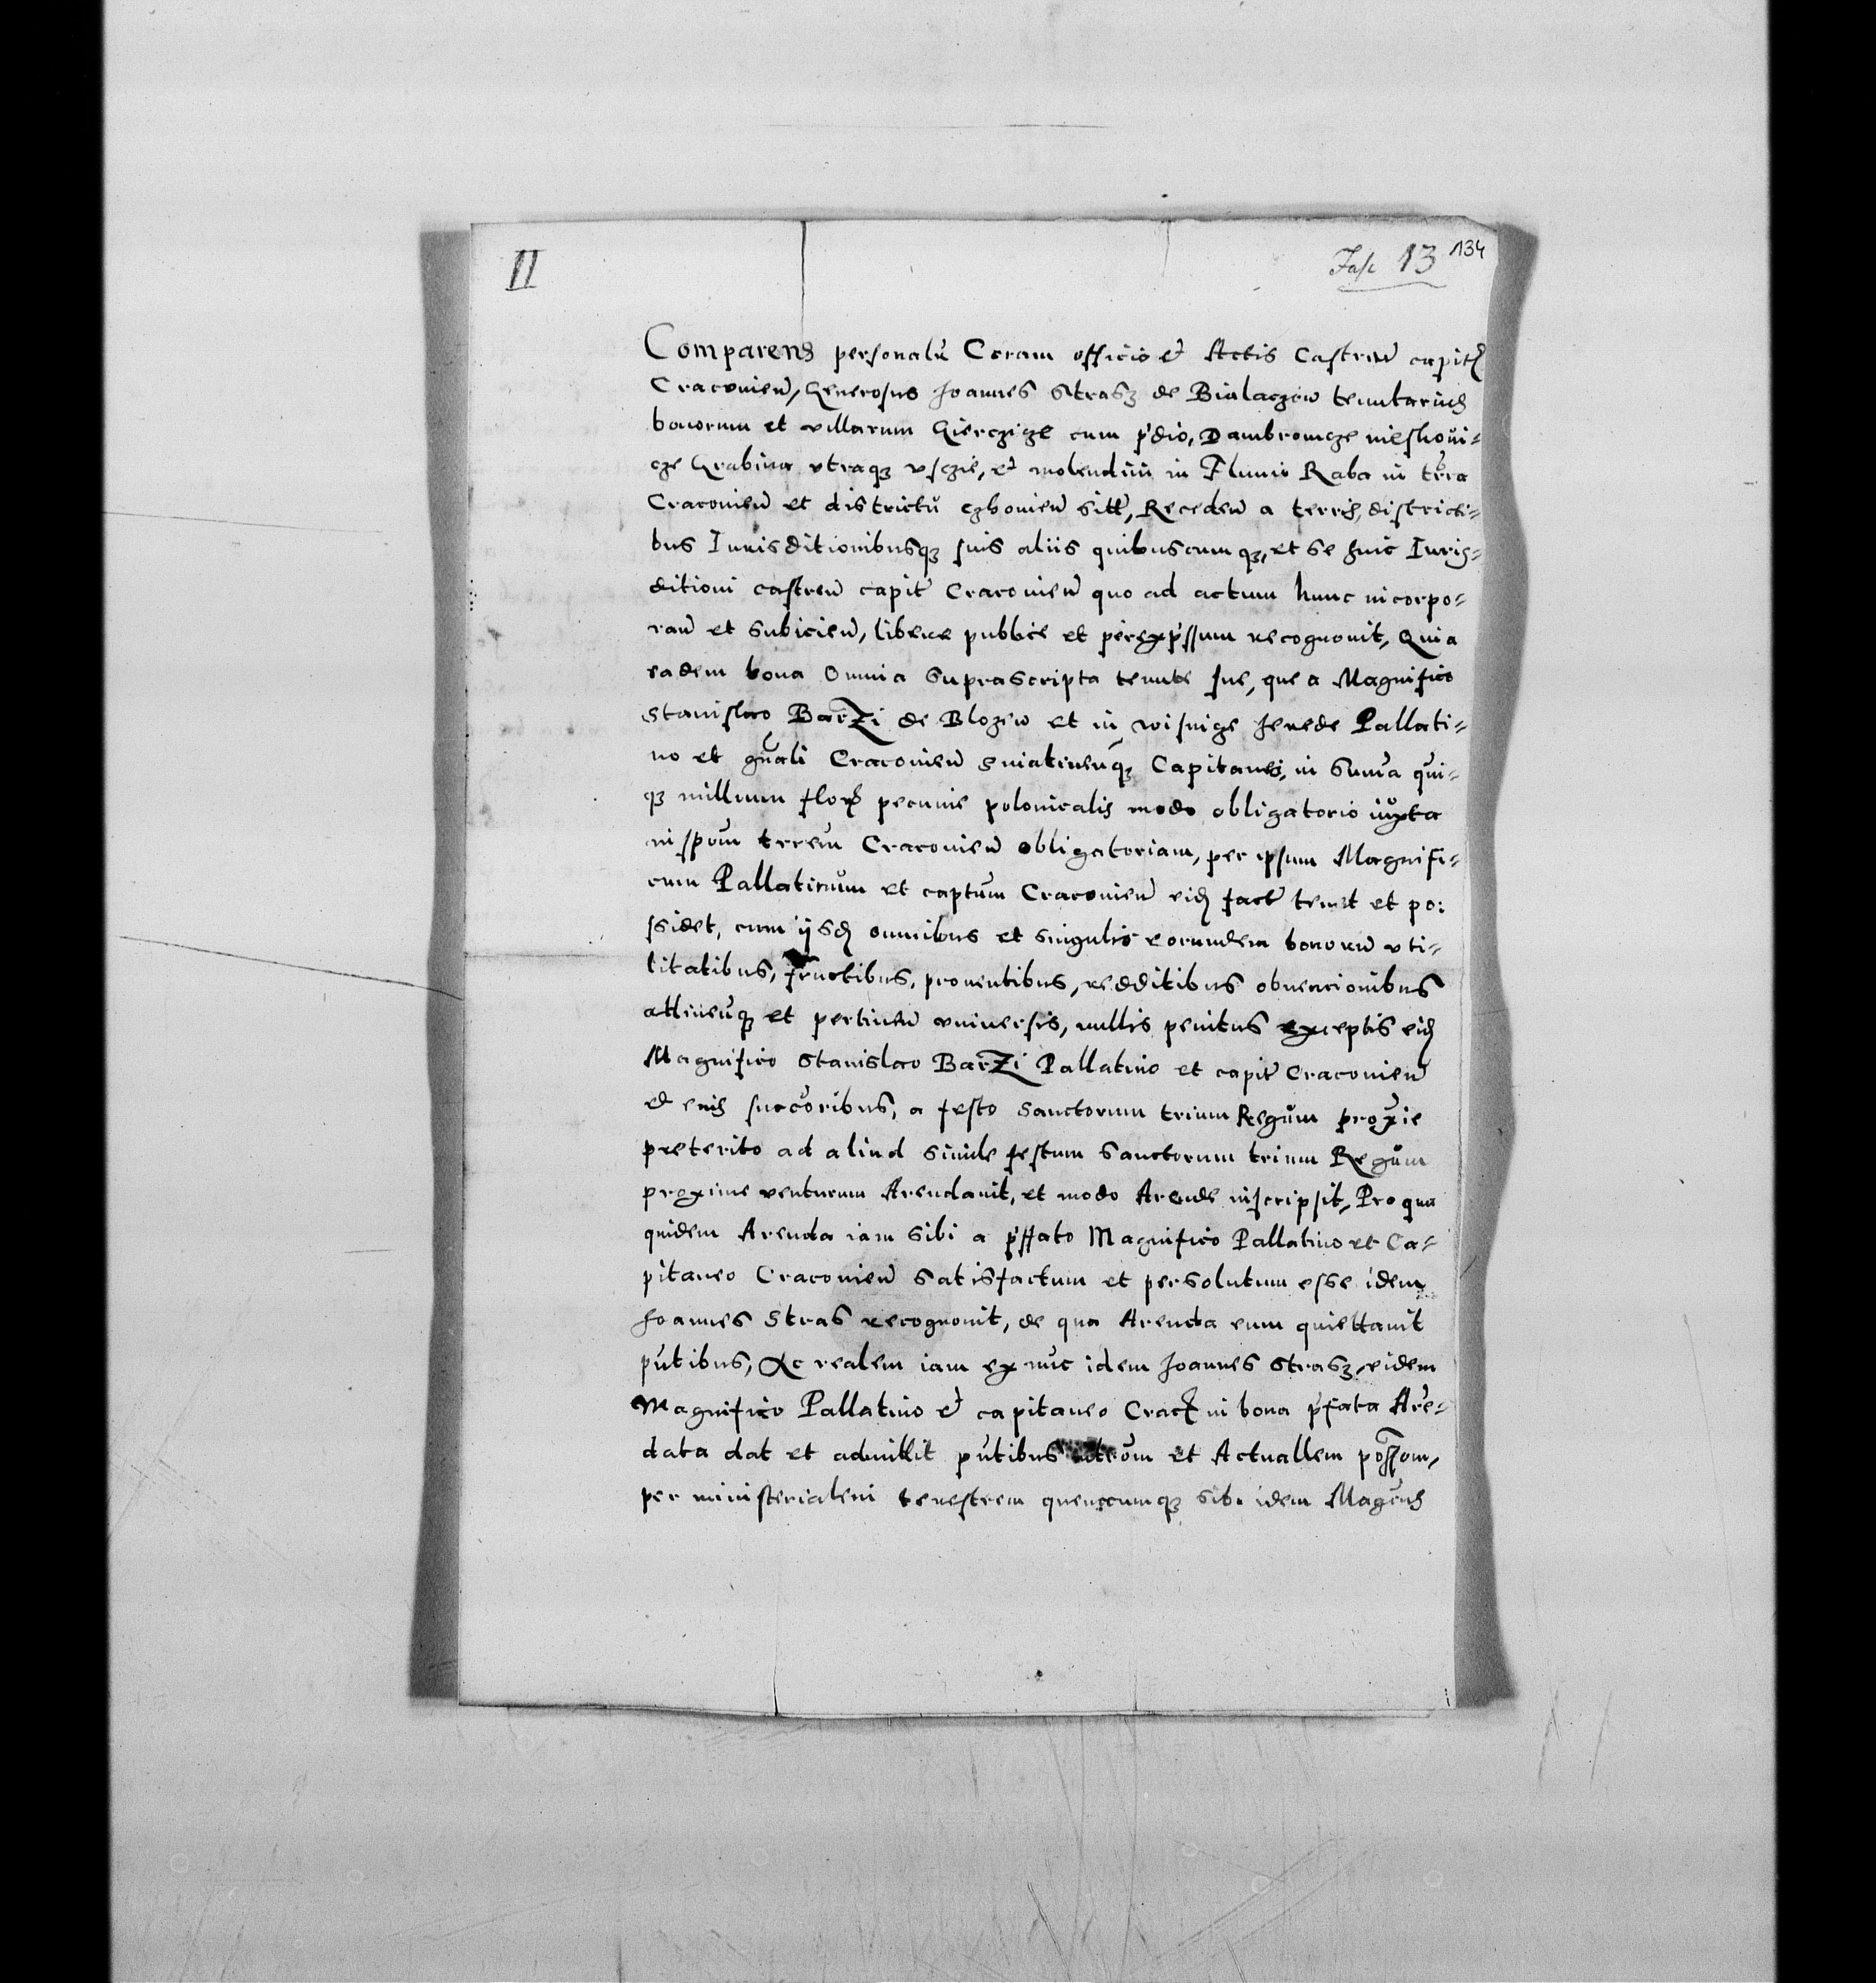 II
Fasc 13 134
Comparens personalr Coram officio et Actis Castren capit
Cracovien, Generosus Joannes Strasz de Bialaczow tenutarius
bonorum et villarum Gierczize cum pdio, Dambrowicze nieshoui-
cze Grabina vtraqz vsczie, et molendini in Fluuio Raba in trra
Cracovien et districtu czhovien sitt, Receden a terris, districti-
bus Jurisditionibusqz suis aliis quibuscumqz, et se huic Juris-
ditioni castren capit Cracovien quo ad actum hunc incorpo-
ran et subicien, libere publice et perexpssum recognouit, Quia
eadem bona Omnia suprascripta tenute sue, que a Magnifico
Stanislao Barzi de Blozew et in wisnize herede Pallati-
no et gnali Cracovien sniatinenqz Capitaneo, in Suma qui-
qz millium flor pecunie polonicalis modo obligatorio iuxta
inspom terrem Cracovien obligatoriam, per ipsum Magnifi-
cum Pallatinum et captum Cracovien eid fact tenet et po:
ssidet, cum iisd omnibus et singulis eorumdem bonorum vti-
litatibus, fructibus, prouentibus, redditibus obuencionibus
attinenqz et pertinen vniuersis, nullis penitus exceptis eid
Magnifico Stanislao Barzi Pallatino et capit Cracovien
et eius succoribus, a festo sanctorum trium Regum proxie
preterito ad aliud simile festum sanctorum trium Regum
proxime venturum Arendauit, et modo Arende inscripsit, Pro qua
quidem Arenda iam sibi a pffato Magnifico Pallatino et Ca-
pitaneo Cracovien satisfactum et persolutum esse idem
Joannes Stras recognouit, de qua Arenda eum quiettauit
pntibus, Ac realem iam ex nuc idem Joannes Strasz, eidem
Magnifico Pallatino et capitaneo Crac in bona pfata Are-
data dat et admittit pntibus et Actuallem possom,
per ministerialem terrestrem quencumqz sibi idem Magcus